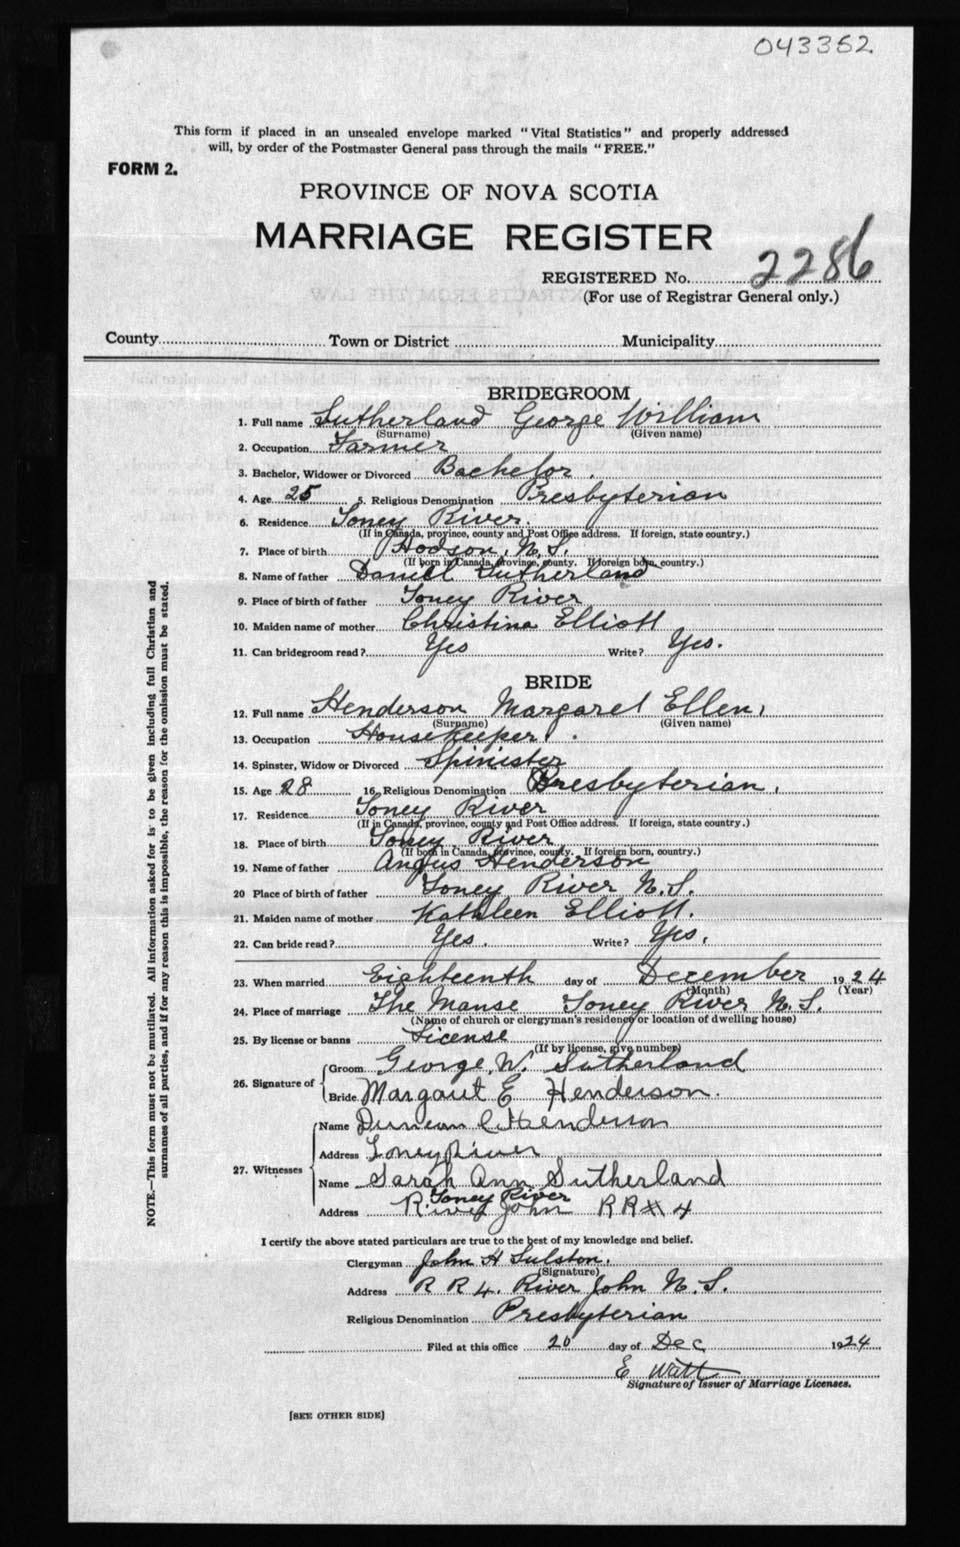 043352.
This form if placed in an unsealed envelope marked "Vital Statistics" and properly addressed
will, by order of the Postmaster General pass through the mails "FREE."
FORM 2.
PROVINCE OF NOVA SCOTIA
MARRIAGE REGISTER
REGISTERED No. 2286
(For use of Registrar General only.)
County Town or District Municipality
BRIDEGROOM
1. Full name Sutherland George William
(Surname) (Given name)
2. Occupation Farmer
3. Bachelor, Widower or Divorced Bachelor.
4. Age 25 5. Religious Denomination Presbyterian
6. Residence Toney River.
(If in Canada, province, county and Post Office address. If foreign, state country.)
7. Place of birth Hodson, N.S.
(If born in Canada, province, county. If foreign born, country.)
8. Name of father Daniel Sutherland
9. Place of birth of father Toney River
10. Maiden name of mother Christina Elliott
11. Can bridegroom read? Yes Write? Yes.
BRIDE
12. Full name Henderson Margaret Ellen,
(Surname) (Given name)
13. Occupation Housekeeper.
14. Spinster, Widow or Divorced Spinister
15. Age 28 16. Religious Denomination Presbyterian,
17. Residence Toney River
(If in Canada, province, county and Post Office address. If foreign, state country.)
18. Place of birth Toney River
(If born in Canada, province, county. If foreign born, country.)
19. Name of father Angus Henderson
20 Place of birth of father Toney River N.S.
21. Maiden name of mother Kathleen Elliott.
22. Can bride read? Yes. Write? Yes,
23. When married Eighteenth day of December 1924
(Month) (Year)
24. Place of marriage The Manse Toney River N.S.
(Name of church or clergyman's residence or location of dwelling house)
25. By license or banns License
(If by license, give number)
26. Signature of
Groom George W. Sutherland
Bride Margaret E Henderson.
27. Witnesses
Name Duncan C Henderson
Address Toney River
Name Sarah Ann Sutherland
Toney River
Address River John RR # 4
I certify the above stated particulars are true to the best of my knowledge and belief.
Clergyman John H Sulston.
(Signature)
Address R R 4. River John N.S.
Religious Denomination Presbyterian
Filed at this office 20 day of Dec 1924
E Watt
Signature of Issuer of Marriage Licenses.
[SEE OTHER SIDE]
NOTE.—This form must not be mutilated. All information asked for is to be given including full Christian and
surnames of all parties, and if for any reason this is impossible, the reason for the omission must be stated.